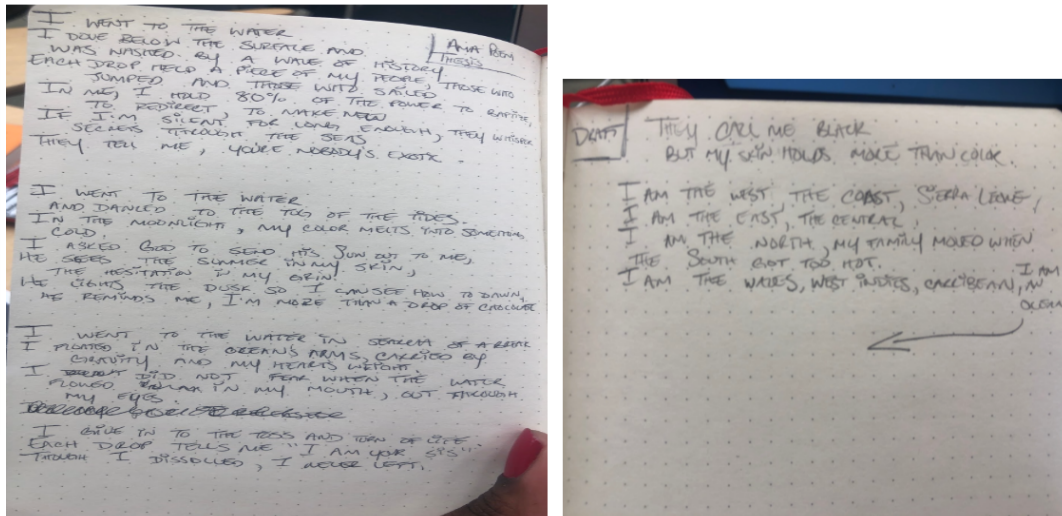 I WENT TO THE WATER
I DOVE BELOW THE SURFACE AND
WAS NASTED BY A WAVE OF HISTORY
EACH DROP HELD A PIECE OF MY PEOPLE, THOSE WHO
JUMPED AND THOSE WHO SAILED
IN ME, I HOLD 80% OF THE POWER TO BAPTIZE,
TO REDIRECT, TO MAKE NEW
IF I'M SILENT FOR LONG ENOUGH, THEY WHISPER
SECRETS THROUGH THE SEAS
THEY TELL ME, YOU'RE NOBODY'S EXOTIC.
AMA POEM
THESIS
I WENT TO THE WATER
AND DANCED TO THE TUG OF THE TIDES.
IN THE MOONLIGHT, MY COLOR MELTS INTO SOMETHING
COLD.
I ASKED GOD TO SEND HIS SUN OUT TO ME,
HE SEES THE SUMMER IN MY SKIN,
THE HESITATION IN MY GRIN.
HE LIGHTS THE DUSK SO I CAN SEE HOW TO DAWN,
HE REMINDS ME, I'M MORE THAN A DROP OF CHOCOLATE
I WENT TO THE WATER IN SEARCH OF A BREAK
I FLOATED IN THE OCEAN'S ARMS, CARRIED BY
GRAVITY AND MY HEARTS WEIGHT.
I DID NOT FEAR WHEN THE WATER
FLOWED IN MY MOUTH, OUT THROUGH
MY EYES.
I GIVE IN TO THE TOSS AND TURN OF LIFE
EACH DROP TELLS ME "I AM YOUR SIS"
THOUGH I DISSOLVED, I NEVER LEFT.
DRAFT
THEY CALL ME BLACK
BUT MY SKIN HOLDS MORE THAN COLOR.
I AM THE WEST, THE COAST, SIERRA LEONE,
I AM THE EAST, THE CENTRAL.
I AM THE NORTH, MY FAMILY MOVED WHEN
THE SOUTH GOT TOO HOT.
I AM THE WALES, WEST INDIES, CARRIBEAN,
I AM
AN
OCEAN